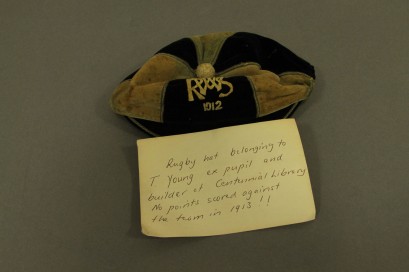 RWS
1912
Rugby hat belonging to
T Young ex pupil and
builder of Centennial Library
No points scored against
the team in 1913 !!